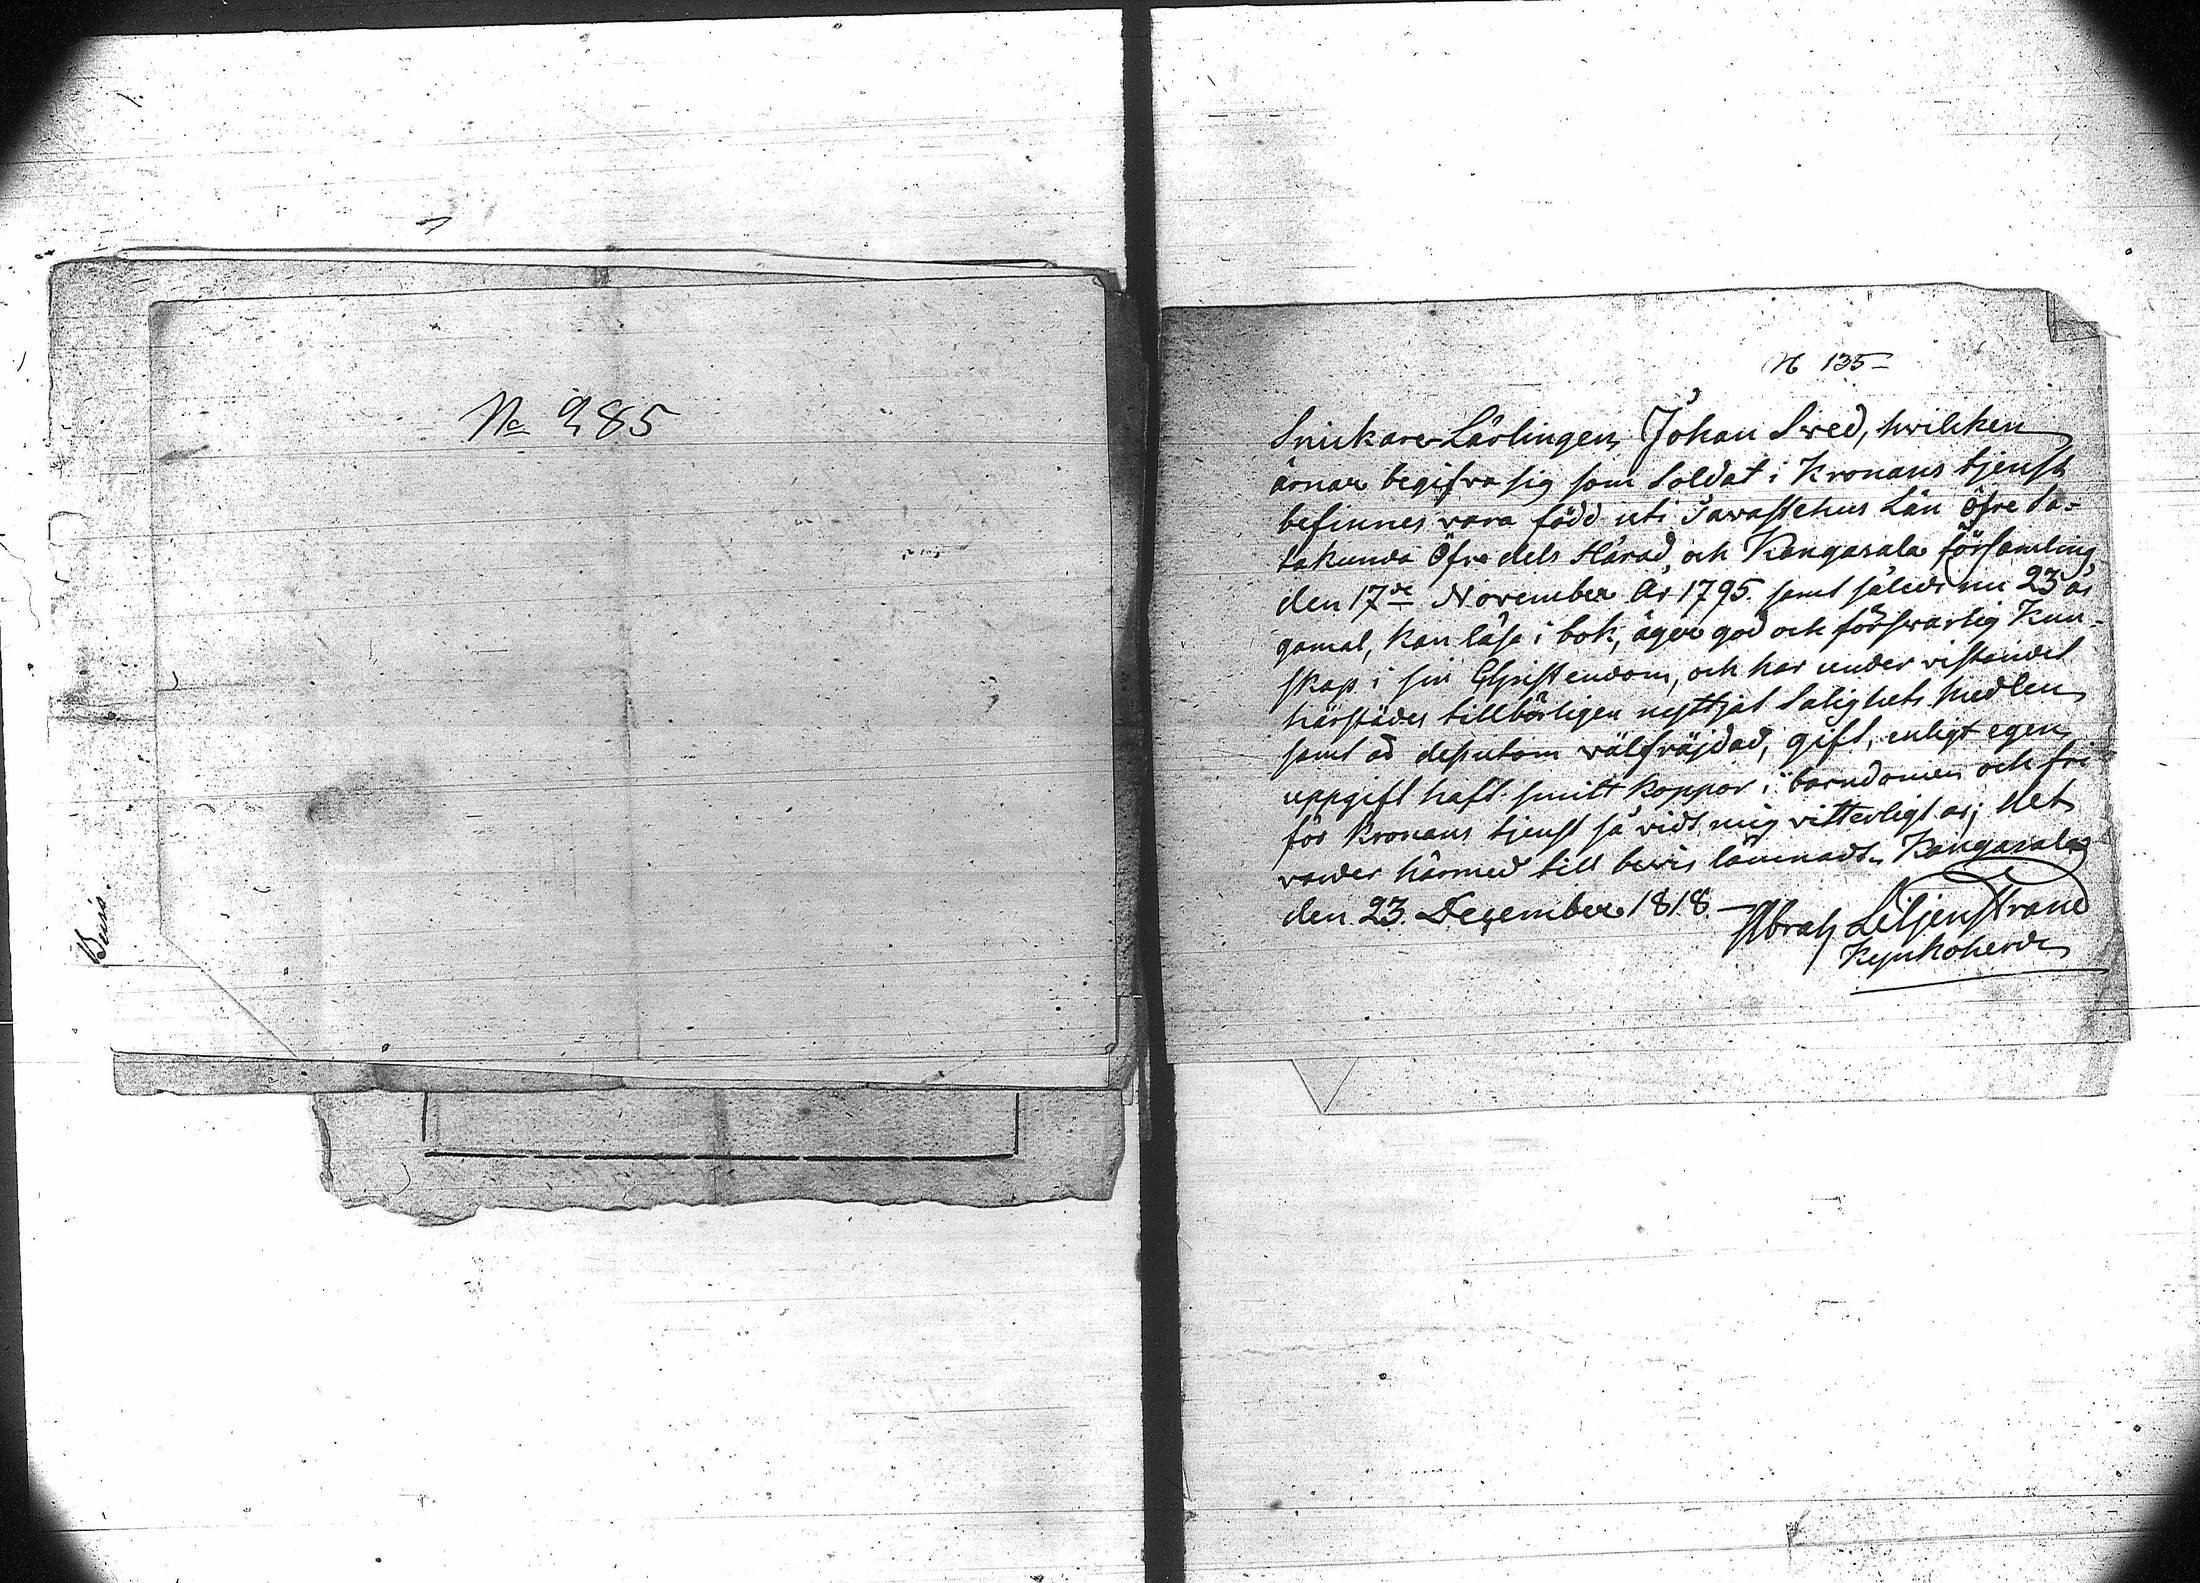 No 285
Bevis.
N 135
Snickare Lärlingen Johan Swed, hvilcken
ärnar begifva sig som Soldat i Kronans tjenst
befinnes vara född uti Tavastehus Län Öfre Sa-
takunda Öfre dels Härad och Kangasala församling
den 17de November År 1795. samt således nu 23 år
gamal, kan läsa i bok, äger god och försvarlig Kun-
skap i sin Christendom, och har under vistandet
härstädes tillbörligen nyttjat Salighets Medlen
samt är dessutom wälfräjdad, gift, enligt egen
uppgift haft smitt koppor i barndomen och fri
för Kronans tjenst så vidt mig vitterligt är; Det
varder härmed till bevis lämnadt. Kangasala
den 23. December 1818. —
Abrah Liljenstrand
Kyrkoherde